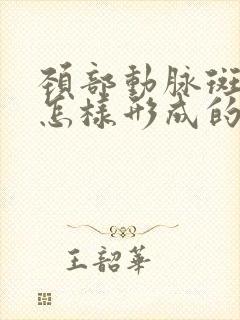 頚部動脉斑
怎樣形成的
王韶華